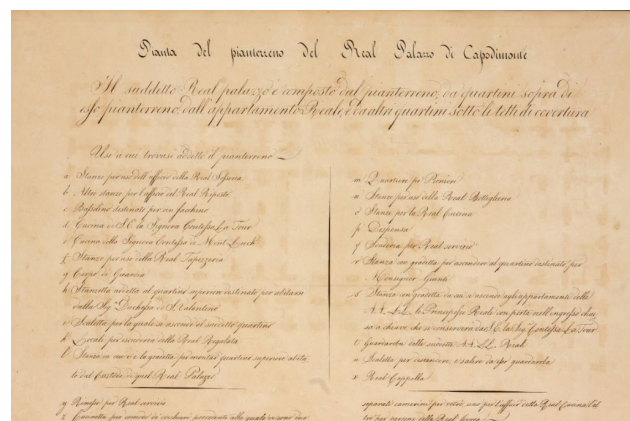 Pianta del pianterreno del Real Palazzo di Capodimonte
Il suddetto Real palazzo è composto dal pianterreno, da quartini sopra di
esso pianterreno, dall'appartamento Reale, e da altri quartini sotto li tetti di covertura
Usi a cui trovasi addetto il pianterreno
a Stanze per uso dell'officio della Real
b Altre stanze per l'officio del Real Riposto
c Bassolino destinato per un facchino
d Cucina di S.E. la Signora Contessa La Tour
e Cucina della Signora Contessa di
f Stanze per uso della Real Tapezzeria
g Corpo di Guardia
h Stanzetta addetta al quartino superiore destinato per abitare
dalla Sig.ra Duchessa di S. Valentino
i Scaletta per la quale si ascende al suddetto quartino
k Locale per
l Stanza in cui vi è la gradetta per montar quartino superiore abita-
to dal Custode di quel Real Palazzo
m Quartino pe'
n Stanze per uso della Real Bottiglieria
o Stanze per la Real Cucina
p Dispensa
q per Real servizio
r Stanza con gradetta per ascendere al quartino destinato per
Monsignor
s Stanze con gradetta da cui si ascende agli appartamento delle
AA. LL. le Principesse Reali con porta nell'ingresso chiu-
sa a chiave che si conserva da S.E. la Sig.ra Contessa La Tour
t Guardaroba delle suddette AA. LL. Reali
u Scaletta per discendere, e salire da essa guardaroba
x Real Cappella
y Rimessa per Real servizio
z
separati camerini per